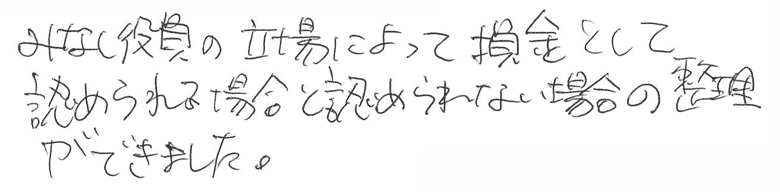 みなし役員の立場によって損金として
認められる場合と認められない場合の整理
ができました。